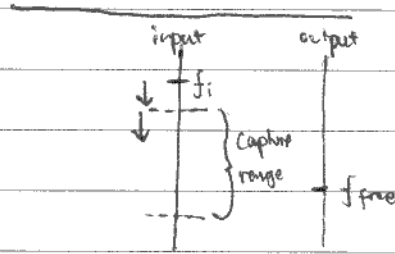 input output
fi
Capture
range
f free